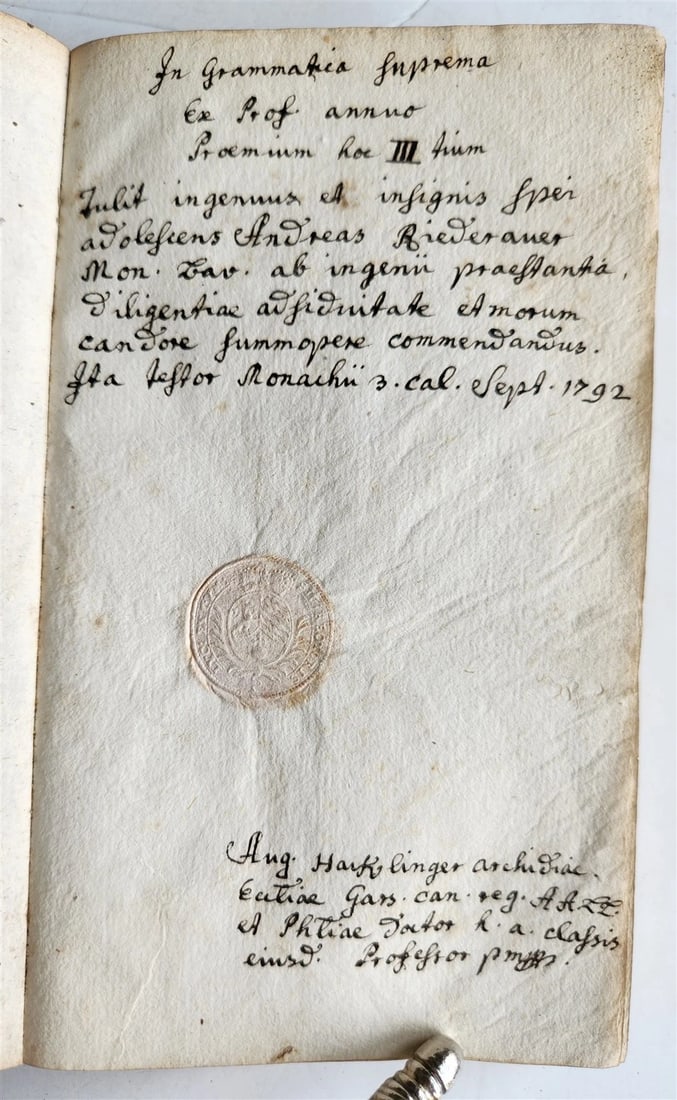 In Grammatica suprema
Ex Prof. annuo
Proemium hoc III tium
Tulit ingenuus et insignis spei
adolescens Andreas Riederauer
Mon. Bav. ab ingenii praestantia,
diligentiae adsiduitate et morum
candore summopere commendandus.
Ita testor Monachii 3. cal. Sept. 1792
Aug. Hacklinger archidiac.
Eccliae Gars. can. reg. AA. LL.
et Phliae doctor h. a. classis
eiusd. Professor